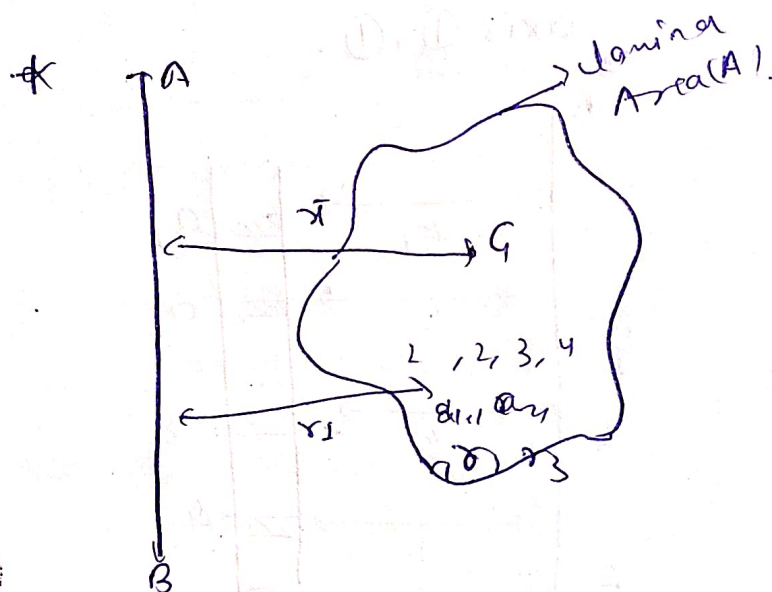 A
lamina
Area(A).
x̄
G
1, 2, 3, 4
a1,
r1
r3
B